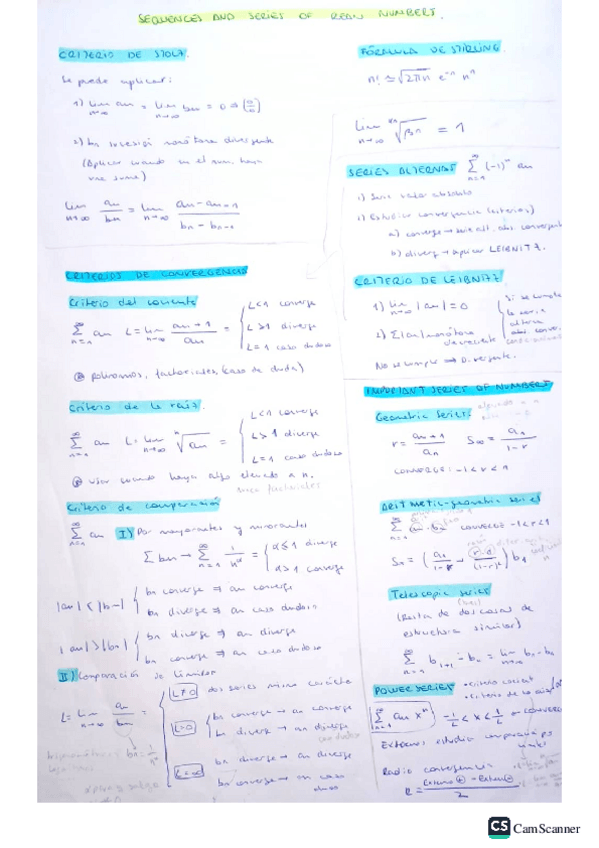 SEQUENCES AND SERIES OF REAL NUMBERS.
CRITERIO DE STOLZ.
Se puede aplicar:
1) lim n→∞ an = lim n→∞ bn = 0 ó (∞/∞)
2) bn sucesión monótona divergente
(Aplicar cuando en el num. haya
una suma)
lim n→∞ an/bn = lim n→∞ (an - an-1)/(bn - bn-1)
FÓRMULA DE STIRLING
n! ≃ √2πn e^-n n^n
lim n→∞ = 1
SERIES ALTERNAS ∞ Σ n=1 (-1)^n an
1) Serie valor absoluto
2) Estudiar convergencia (criterios)
a) converge → serie alt. abs. convergente
b) diverg → aplicar LEIBNITZ.
CRITERIO DE LEIBNITZ
1) lim n→∞ |an| = 0
2) Σ|an| monótona
decreciente
Si se cumple
la serie
alterna
No se cumple ⇒ Divergente.
CRITERIOS DE CONVERGENCIA
Criterio del cociente
∞ Σ n=1 an L = lim n→∞ an+1/an =
L<1 converge
L>1 diverge
L=1 caso dudoso
polinomios, factoriales (caso de duda)
Criterio de la raíz.
∞ Σ n=1 an L = lim n→∞ n√an =
L<1 converge
L>1 diverge
L=1 caso dudoso
usar cuando haya algo elevado a n.
nunca factoriales
Criterio de comparación
∞ Σ n=1 an I) Por mayorantes y minorantes
Σ bn → ∞ Σ n=1 1/n^α =
α≤1 diverge
α>1 converge
|an| < |bn|
bn converge ⇒ an converge
bn diverge ⇒ an caso dudoso
|an| > |bn|
bn diverge ⇒ an diverge
bn converge ⇒ an caso dudoso
II) Comparación de límites
L = lim n→∞ an/bn =
L≠0 dos series mismo carácter
L=0
bn converge → an converge
bn diverge → an
L=∞
bn diverge → an diverge
bn converge → an caso
dudoso
IMPORTANT SERIES OF NUMBERS
Geometric Series
r = an+1/an S∞ = a1/(1-r)
CONVERGE: -1<r<1
ARITMETIC-geometric series
∞ Σ n=1 an · bn CONVERGE -1<r<1
Sn = (a1/(1-r) + r·d/(1-r)²) b1
Telescopic series
(Resta de dos cosas de
estructura similar)
∞ Σ n=1 bi+1 - bn = lim n→∞
POWER SERIES
• criterio cocient
• criterio de la raíz
∞ Σ n=1 an x^n -1/L < x < 1/L → CONVERGE
Extremos estudio comparando
Radio convergencia
R = /2
CS CamScanner